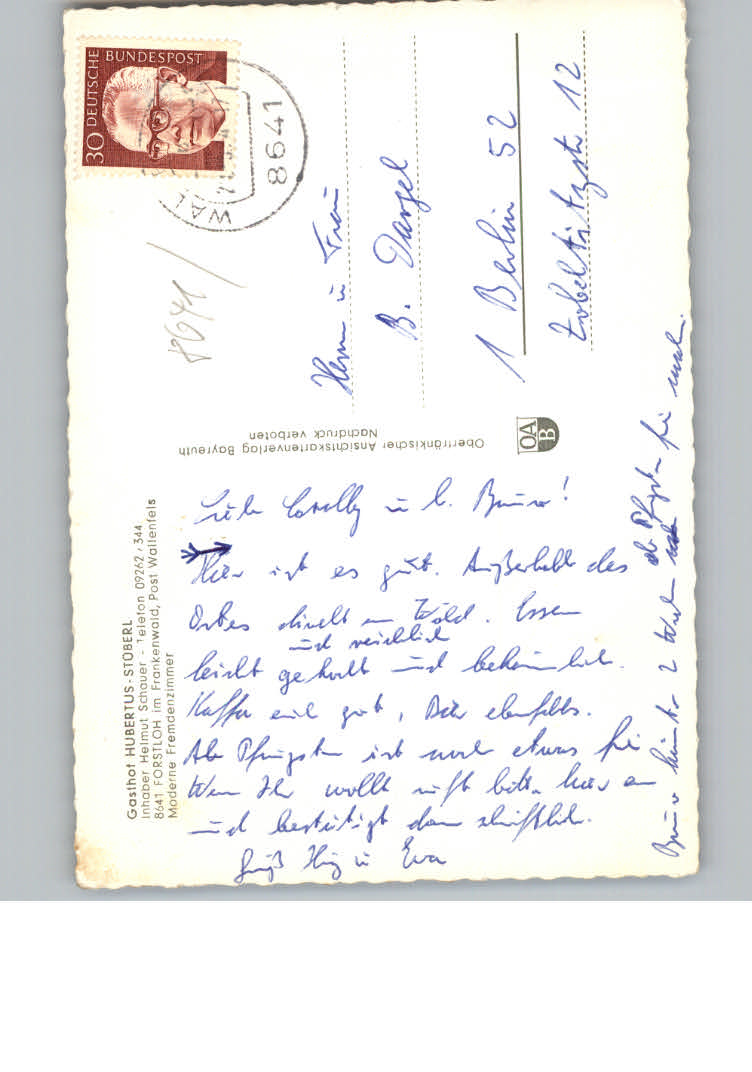 Gasthof HUBERTUS-STÜBERL
Inhaber Helmut Schauer - Telefon 09262/344
8641 FORSTLOH im Frankenwald, Post Wallenfels
Moderne Fremdenzimmer
Liebe u. l. Bruno!
Hier ist es gut. Außerhalb des
Ortes direkt am Wald. Essen
und reichlich
leicht gekocht und bekömmlich.
Kaffee gut, Bier ebenfalls.
Ab Pfingsten ist noch etwas frei
Wenn Ihr wollt ruft bitte hier an
und bestätigt dann schriftlich.
Gruß u Eva
Bruno könnte 2 Wochen ab Pfingsten frei machen.
Oberfränkischer Ansichtskartenverlag Bayreuth
Nachdruck verboten
OA
B
DEUTSCHE BUNDESPOST
30
8641
WAL
8641
Herrn u Frau
B. Dargel
1 Berlin 52
Zobeltitzstr 12